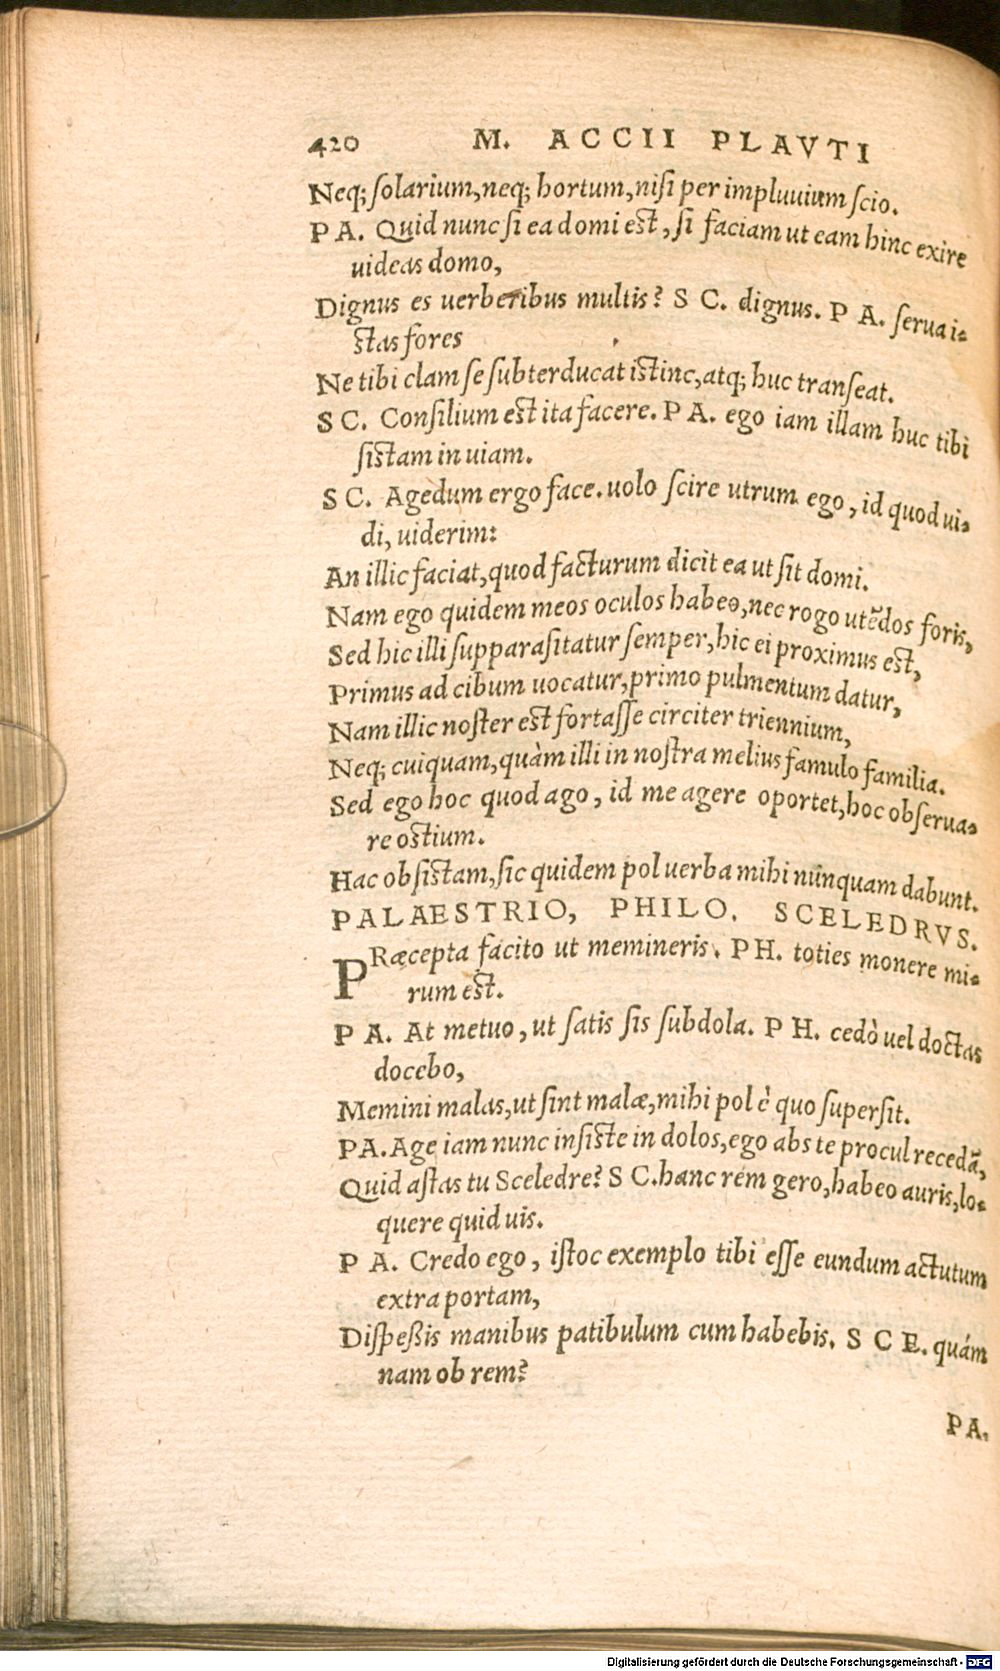 420 M. ACCII PLAVTI
Neq; solarium, neq; hortum, nisi per impluuium scio.
PA. Quid nunc si ea domi est, si faciam ut eam hinc exire
uideas domo,
Dignus es uerberibus multis? SC. dignus. PA. serua i-
stas fores
Ne tibi clam se subterducat istinc, atq; huc transeat.
SC. Consilium est ita facere. PA. ego iam illam huc tibi
sistam in uiam.
SC. Agedum ergo face. uolo scire utrum ego, id quod ui-
di, uiderim:
An illic faciat, quod facturum dicit ea ut sit domi.
Nam ego quidem meos oculos habeo, nec rogo utẽdos foris,
Sed hic illi supparasitatur semper, hic ei proximus est,
Primus ad cibum uocatur, primo pulmentum datur,
Nam illic noster est fortasse circiter triennium,
Neq; cuiquam, quàm illi in nostra melius famulo familia.
Sed ego hoc quod ago, id me agere oportet, hoc obserua-
re ostium.
Hac obsistam, sic quidem pol uerba mihi nunquam dabunt.
PALAESTRIO, PHILO. SCELEDRVS.
PRæcepta facito ut memineris. PH. toties monere mi-
rum est.
PA. At metuo, ut satis sis subdola. PH. cedò uel doctas
docebo,
Memini malas, ut sint malæ, mihi pol è quo supersit.
PA. Age iam nunc insiste in dolos, ego abs te procul recedã,
Quid astas tu Sceledre? SC. hanc rem gero, habeo auris, lo-
quere quid uis.
PA. Credo ego, istoc exemplo tibi esse eundum actutum
extra portam,
Dispeßis manibus patibulum cum habebis. SCE. quám
nam ob rem?
PA.
Digitalisierung gefördert durch die Deutsche Forschungsgemeinschaft - DFG